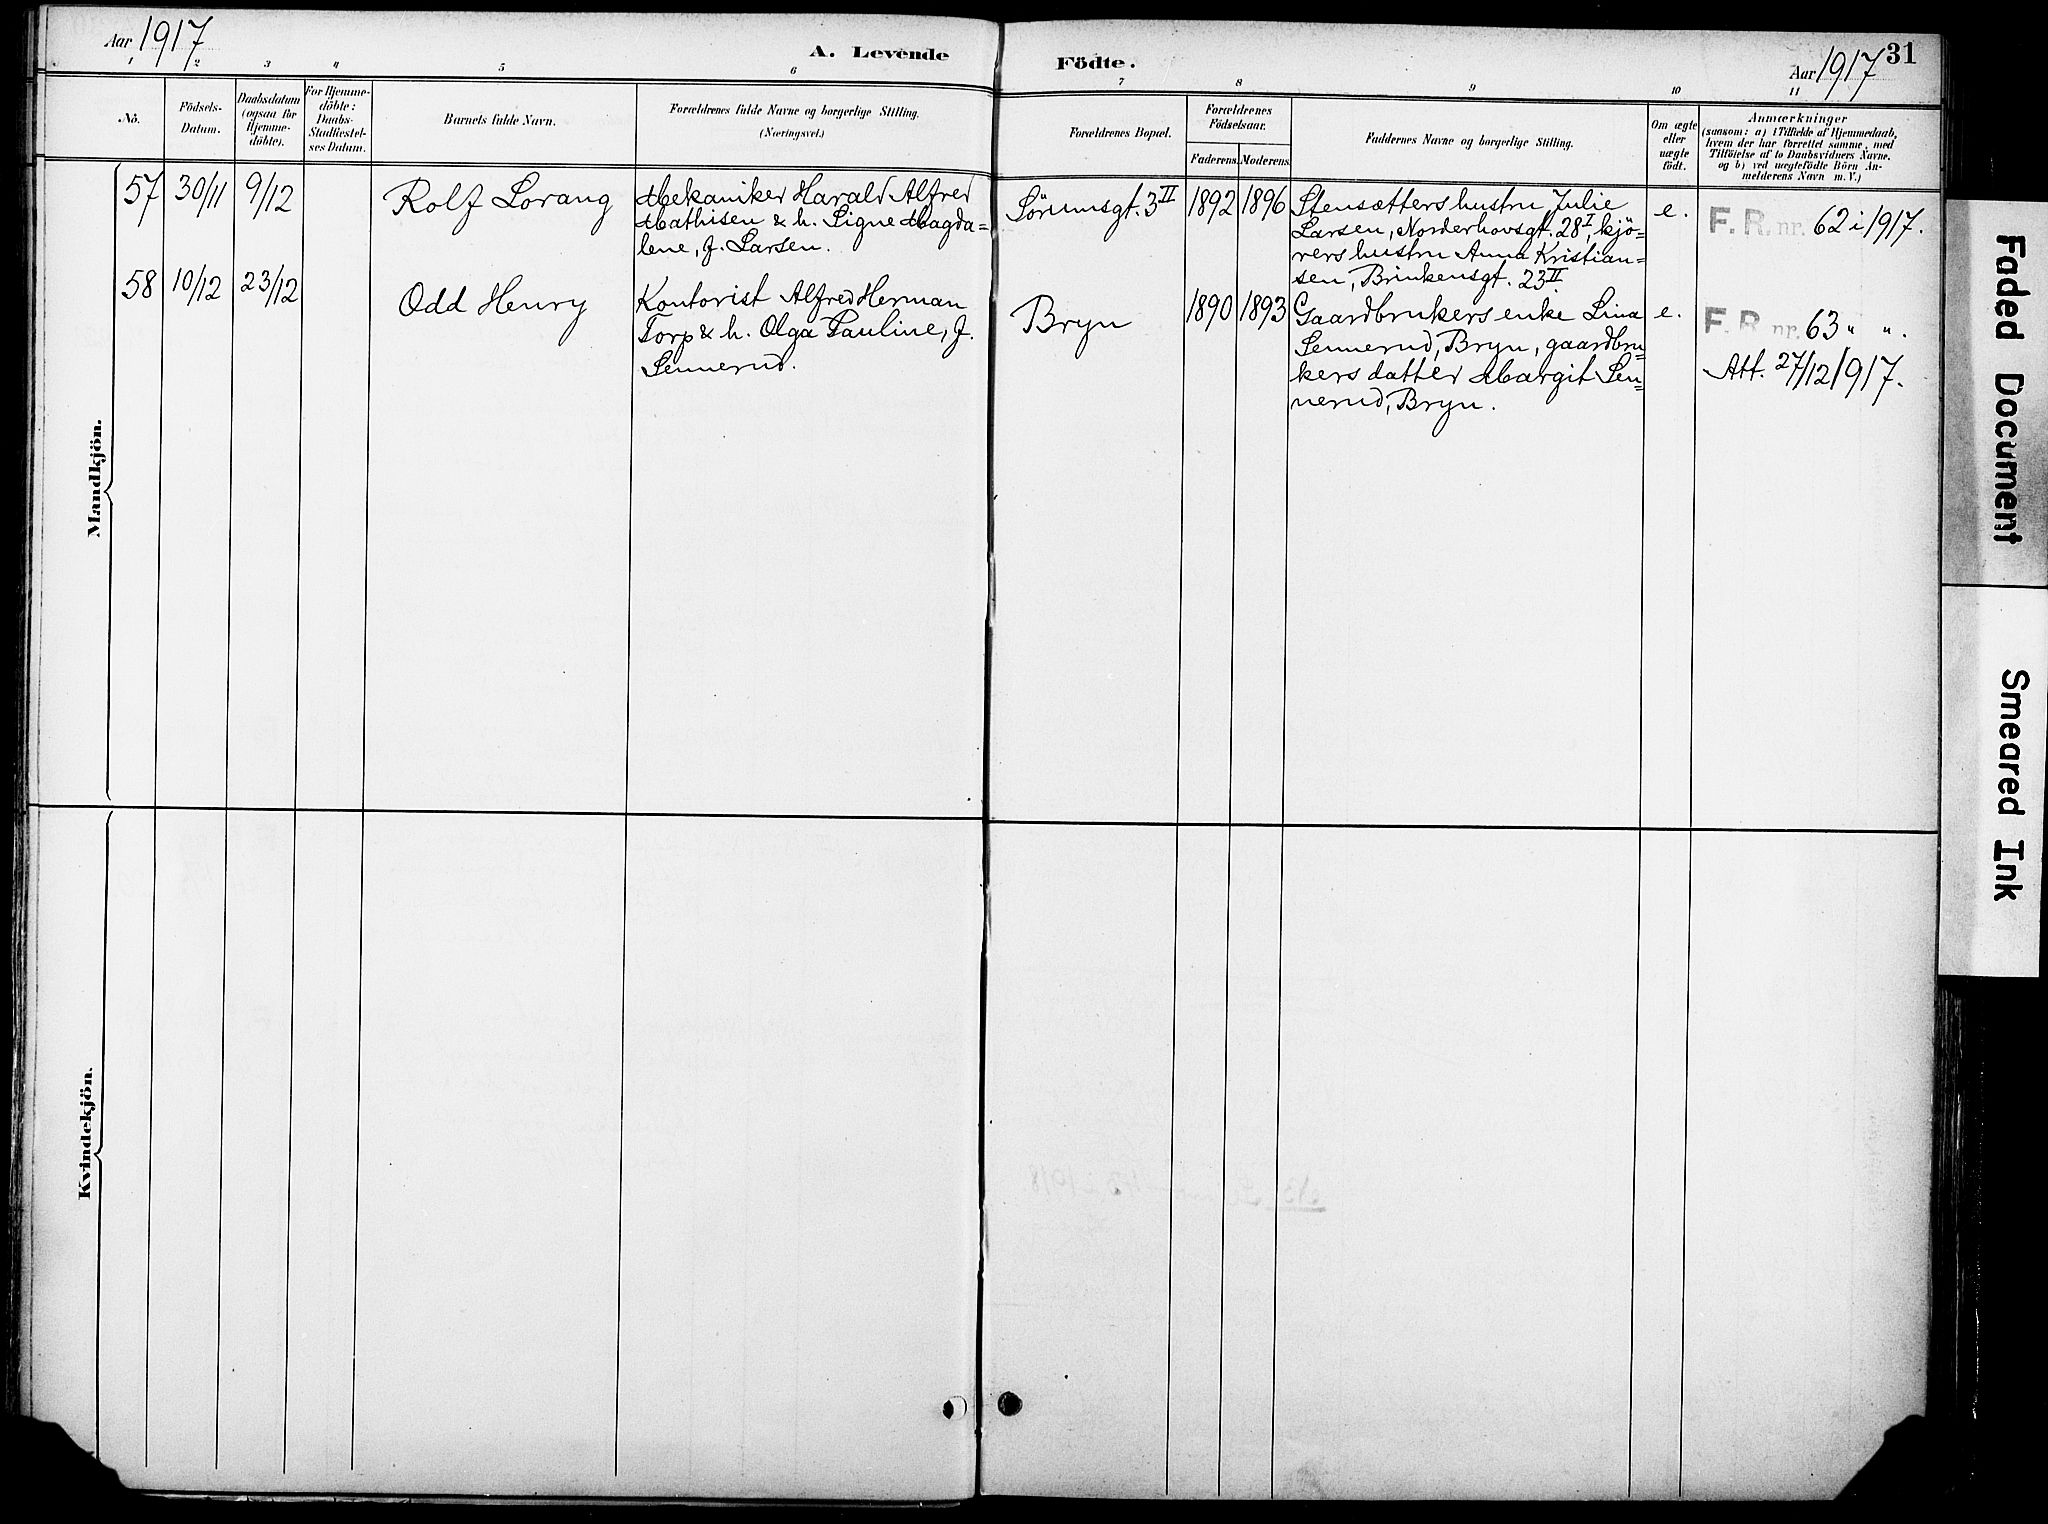 Aar 1917
A. Levende
Födte.
Aar 1917
31
1 2 3 4 5 6 7 8 9 10 11
No.
Födsels-
Datum.
Daabsdatum
(ogsaa for
Hjemme-
döbte).
For Hjemme-
döbte:
Daabs-
Stadfæstel-
ses Datum.
Barnets fulde Navn.
Forældrenes fulde Navne og borgerlige Stilling.
(Næringsvei.)
Forældrenes Bopæl.
Forældrenes
Födselsaar.
Faderens. Moderens.
Faddernes Navne og borgerlige Stilling.
Om ægte
eller
uægte
födt.
Anmærkninger
(saasom: a) i Tilfælde af Hjemmedaab,
hvem der har forrettet samme, med
Tilföielse af to Daabsvidners Navne.
og b) ved uægtefödte Börn An-
melderens Navn m. V.)
Mandkjön.
57 30/11 9/12
Rolf Lorang
Mekaniker Harald Alfred
Mathisen & h. Signe Magda=
lene, f. Larsen.
Sörumsgt. 3 II
1892 1896
Stensætters hustru Julie
Larsen, Norderhovsgt. 28 I, kjö=
rers hustru Anna Kristian=
sen, Brinkensgt. 23 II
e.
F. R. nr. 62 i 1917.
58 10/12 23/12
Odd Henry
Kontorist Alfred Herman
Torp & h. Olga Pauline, f.
Sennerud.
Bryn
1890 1893
Gaardbrukers enke Lina
Sennerud, Bryn, gaardbru=
kers datter Margit Sen=
nerud, Bryn.
e.
F. R. nr. 63 " ".
Att. 27/12 1917.
Kvindekjön.
Faded Document
Smeared Ink